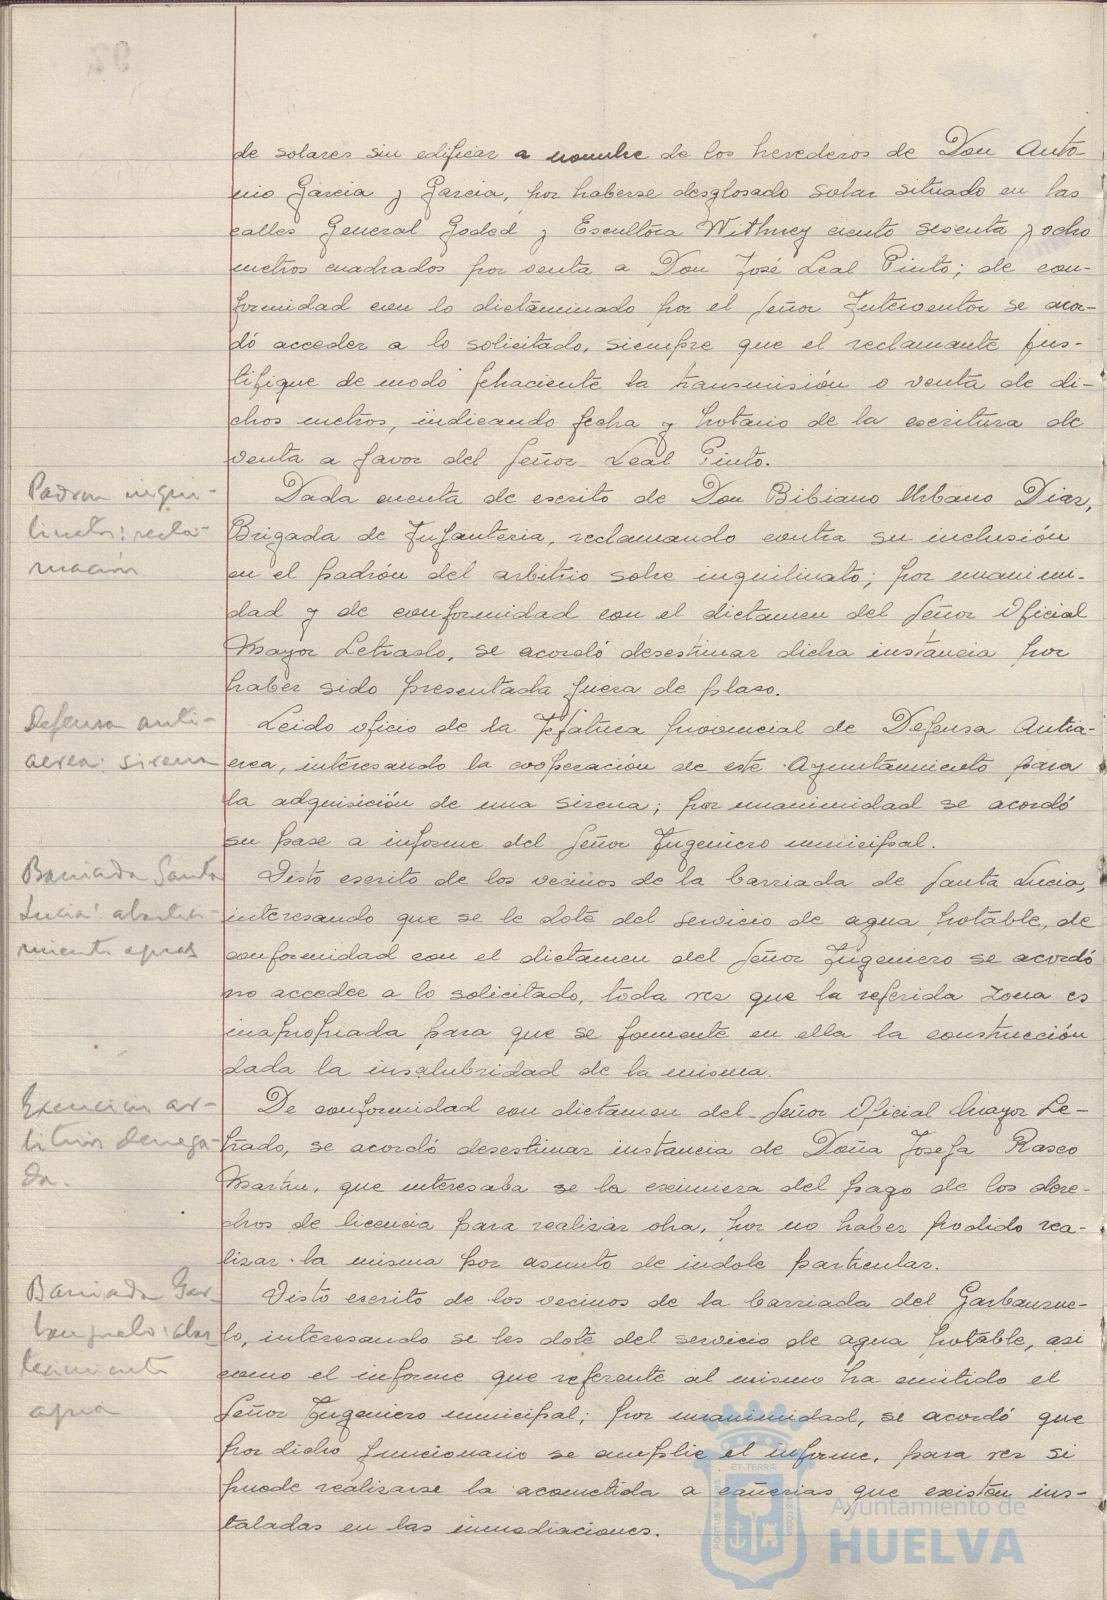 de solares sin edificar a nombre de los herederos de Don Anto-
nio Garcia y Garcia, por haberse desglosado solar situado en las
calles General Goded y Escultora Withney ciento sesenta y ocho
metros cuadrados por venta a Don José Leal Pinto; de con-
formidad con lo dictaminado por el Señor Interventor se acor-
dó acceder a lo solicitado, siempre que el reclamante jus-
tifique de modo fehaciente la transmisión o venta de di-
chos metros, indicando fecha y Notario de la escritura de
venta a favor del Señor Leal Pinto.
Padron inqui-
linatos: recla-
macion
Dada cuenta de escrito de Don Bibiano Urbano Diaz,
Brigada de Infanteria, reclamando contra su inclusión
en el padrón del arbitrio sobre inquilinato; por unanimi-
dad y de conformidad con el dictamen del Señor Oficial
Mayor Letrado, se acordó desestimar dicha instancia por
haber sido presentada fuera de plazo.
Defensa anti-
aerea: sirena
Leido oficio de la Jefatura provincial de Defensa Antia-
erea, interesando la cooperación de este Ayuntamiento para
la adquisición de una sirena; por unanimidad se acordó
su pase a informe del Señor Ingeniero municipal.
Barriada Santa
Lucia: abasteci-
miento aguas
Visto escrito de los vecinos de la barriada de Santa Lucia,
interesando que se le dote del servicio de agua potable, de
conformidad con el dictamen del Señor Ingeniero se acordó
no acceder a lo solicitado, toda vez que la referida zona es
inapropiada para que se fomente en ella la construcción
dada la insalubridad de la misma.
Exencion ar-
bitrios denega-
da.
De conformidad con dictamen del Señor Oficial Mayor Le-
trado, se acordó desestimar instancia de Doña Josefa Rasco
Martin, que interesaba se la eximiera del pago de los dere-
chos de licencia para realizar obra, por no haber podido rea-
lizar la misma por asunto de indole particular.
Barriada Gar-
banzuelo: abas
tecimiento
agua
Visto escrito de los vecinos de la barriada del Garbanzue-
lo, interesando se les dote del servicio de agua potable, asi
como el informe que referente al mismo ha emitido el
Señor Ingeniero municipal; por unanimidad, se acordó que
por dicho funcionario se amplie el informe, para ver si
puede realizarse la acometida a cañerias que existen ins-
taladas en las inmediaciones.
Ayuntamiento de
HUELVA